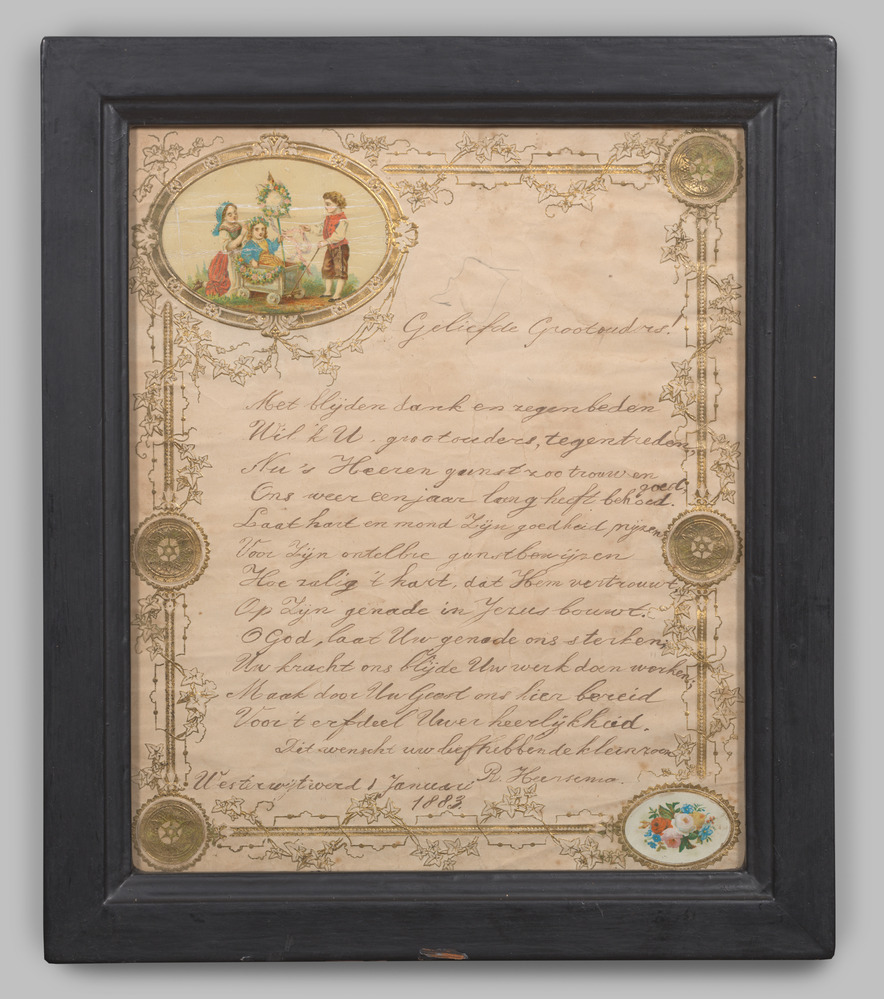 Geliefde Grootouders!
Met blijden dank en zegenbeden
Wil 'k U. grootouders, tegentreden,
Nu 's Heeren gunst zoo trouw en goed;
Ons weer een jaar lang heeft behoed.
Laat hart en mond Zijn goedheid prijzen
Voor Zijn ontelbre gunstbewijzen
Hoe zalig 't hart, dat Hem vertrouwt
Op Zijn genade in Jezus bouwt.
O God, laat Uw genade ons sterken;
Uw kracht ons blijde Uw werk doen werken;
Maak door Uw Geest ons hier bereid
Voor 't erfdeel Uwer heerlijkheid.
Dit wenscht uw liefhebbende kleinzoon
Westerwijtwerd 1 Januari R. Huisema.
1883.